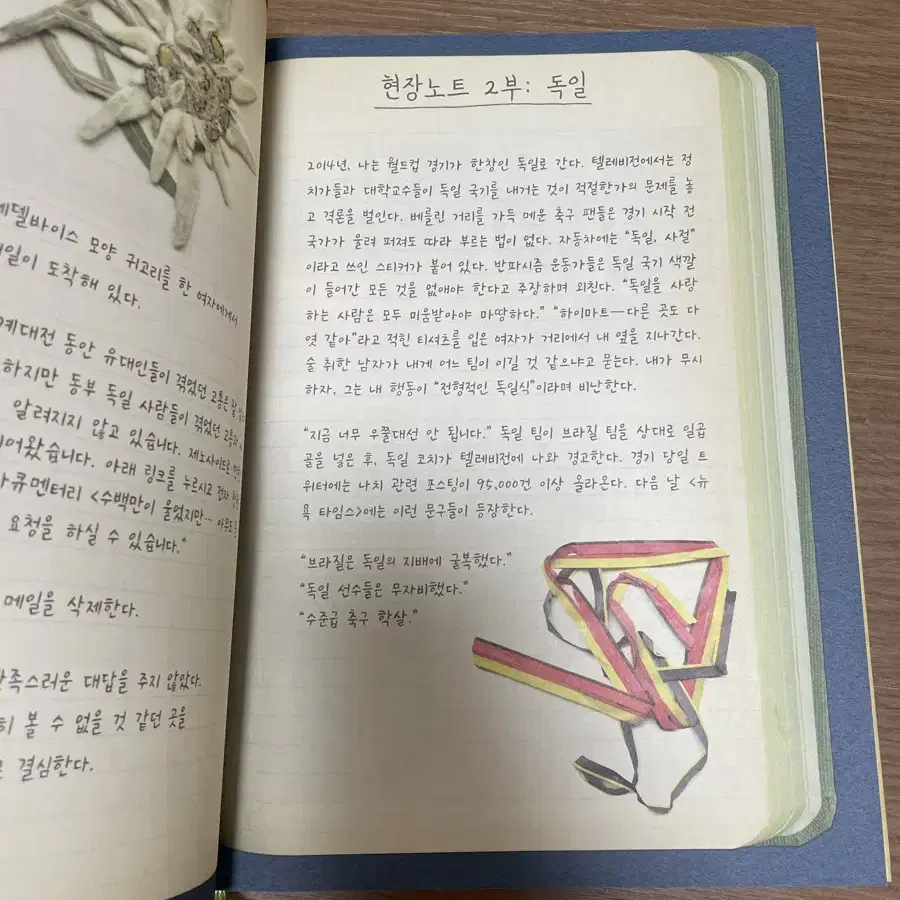 에델바이스 모양 귀고리를 한 여자에게서
메일이 도착해 있다.
계대전 동안 유대인들이 겪었던 고통은 잘
하지만 동부 독일 사람들이 겪었던
알려지지 않고 있습니다.
되어왔습니다. 아래 링크를 누르시고
다큐멘터리 <수백만이 울었지만…
요청을 하실 수 있습니다."
메일을 삭제한다.
만족스러운 대답을 주지 않았다.
히 볼 수 없을 것 같던 곳을
로 결심한다.
현장노트 2부: 독일
2014년, 나는 월드컵 경기가 한창인 독일로 간다. 텔레비전에서는 정
치가들과 대학교수들이 독일 국기를 내거는 것이 적절한가의 문제를 놓
고 격론을 벌인다. 베를린 거리를 가득 메운 축구 팬들은 경기 시작 전
국가가 울려 퍼져도 따라 부르는 법이 없다. 자동차에는 "독일, 사절"
이라고 쓰인 스티커가 붙어 있다. 반파시즘 운동가들은 독일 국기 색깔
이 들어간 모든 것을 없애야 한다고 주장하며 외친다. "독일을 사랑
하는 사람은 모두 미움받아야 마땅하다." "하이마트—다른 곳도 다
엿 같아"라고 적힌 티셔츠를 입은 여자가 거리에서 내 옆을 지나간다.
술 취한 남자가 내게 어느 팀이 이길 것 같으냐고 묻는다. 내가 무시
하자, 그는 내 행동이 "전형적인 독일식"이라며 비난한다.
"지금 너무 우쭐대선 안 됩니다." 독일 팀이 브라질 팀을 상대로 일곱
골을 넣은 후, 독일 코치가 텔레비전에 나와 경고한다. 경기 당일 트
위터에는 나치 관련 포스팅이 95,000건 이상 올라온다. 다음 날 <뉴
욕 타임스>에는 이런 문구들이 등장한다.
"브라질은 독일의 지배에 굴복했다."
"독일 선수들은 무자비했다."
"수준급 축구 학살."